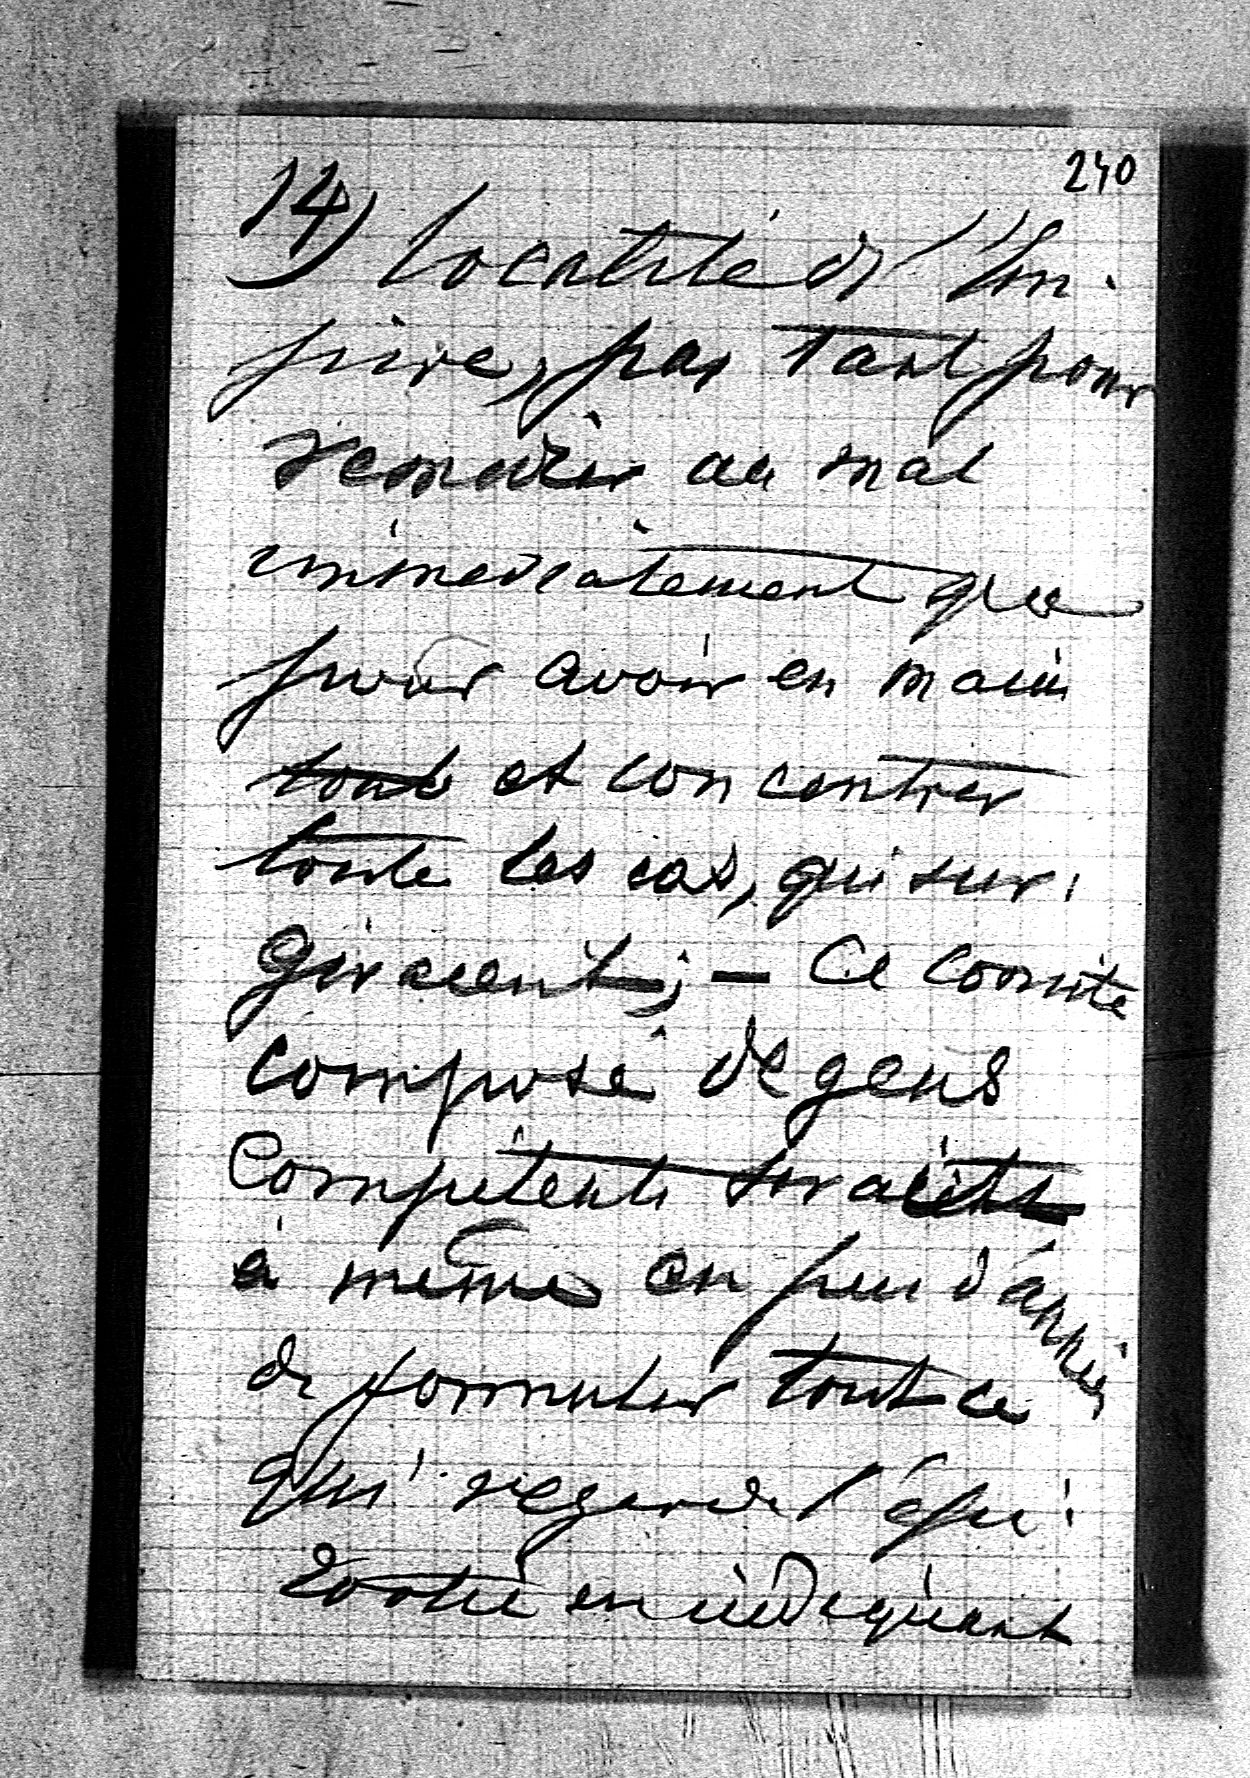 240
14) localité de l'Em-
pire, pas tant pour
remedier au mal
immediatement que
pour avoir en main
tout et concentrer
toute les cas, qui sur-
giraient; — Ce comité
composé de gens
Competents serait
à même en peu d'années
de formuler tout ce
qui regarde l'épi-
zootie en indiquant